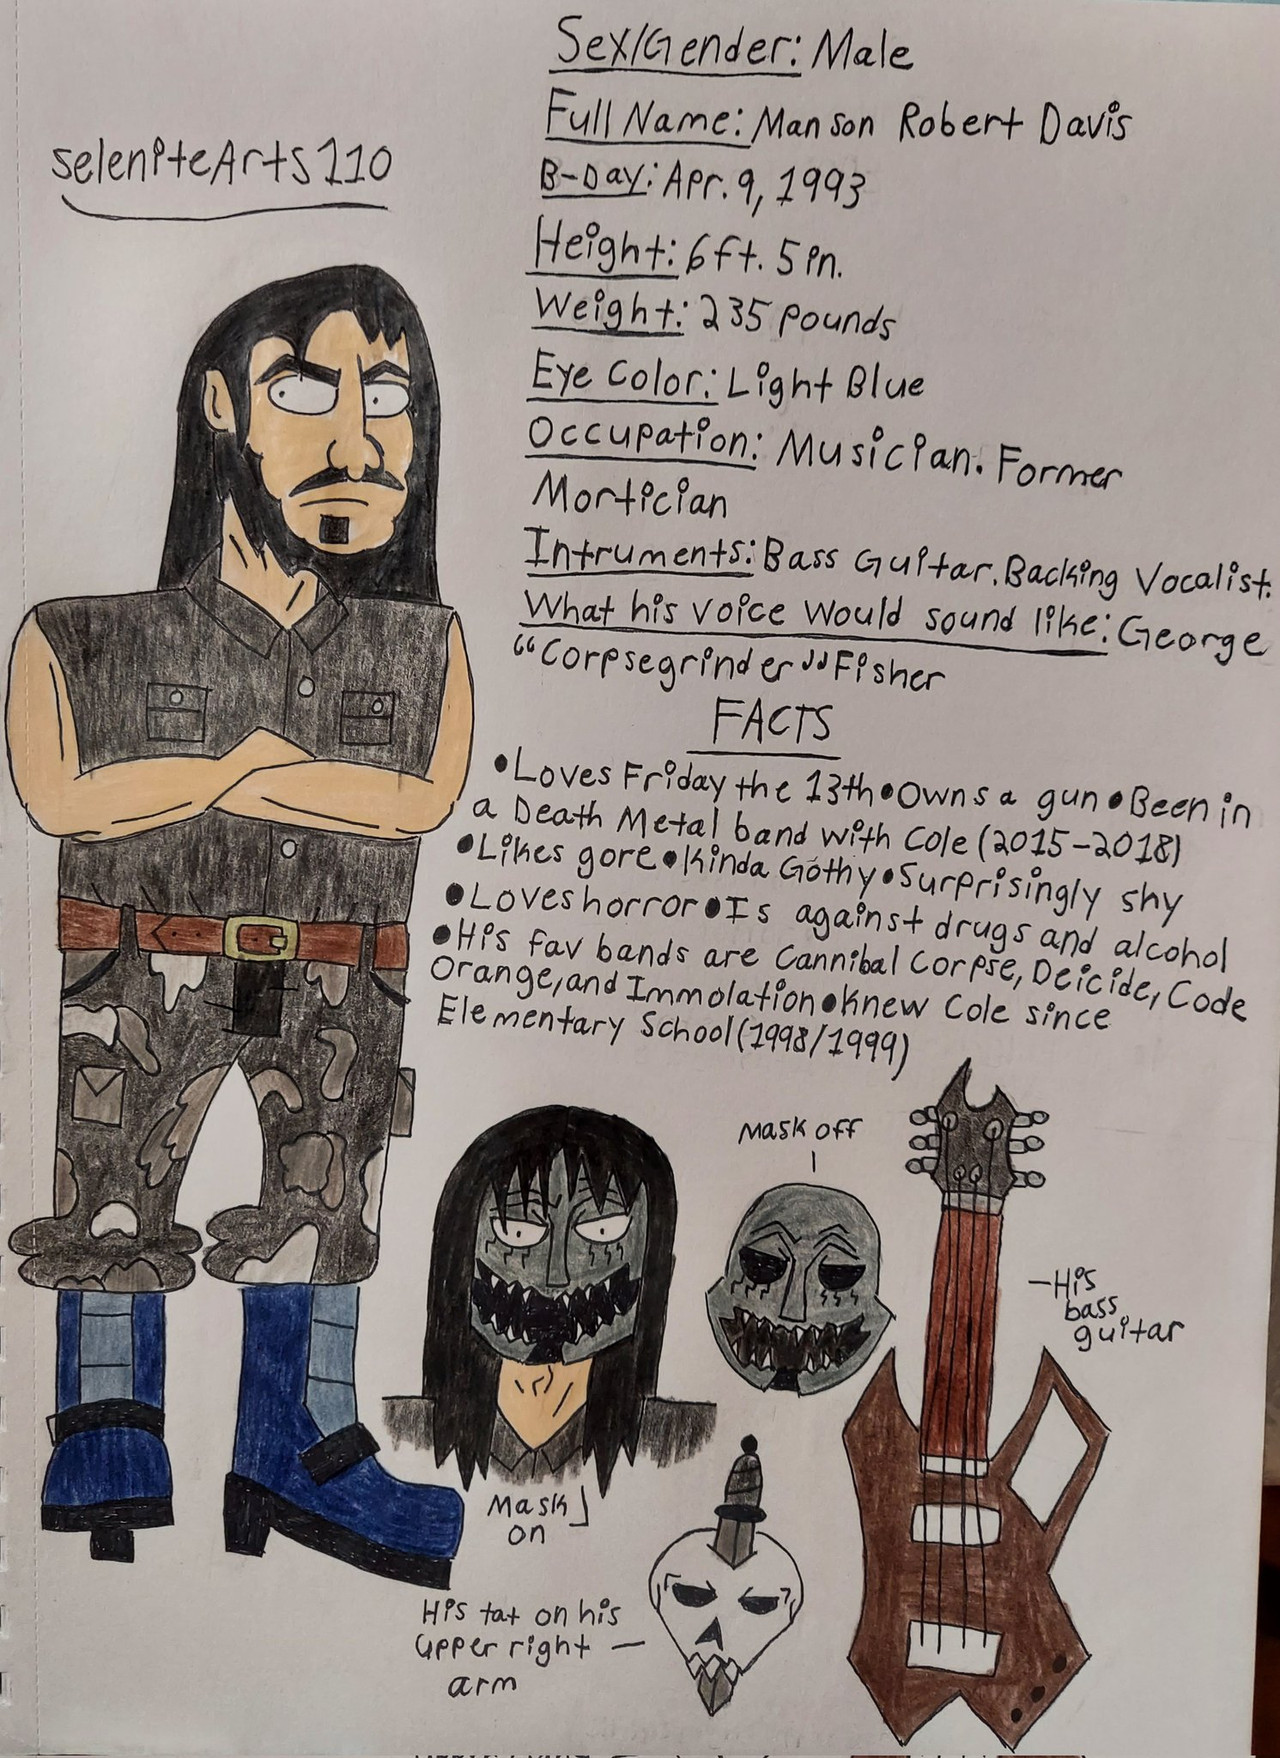 seleniteArts110
Sex/Gender: Male
Full Name: Manson Robert Davis
B-Day: Apr. 9, 1993
Height: 6ft. 5in.
Weight: 235 pounds
Eye Color: Light Blue
Occupation: Musician. Former
Mortician
Intruments: Bass Guitar. Backing Vocalist.
What his voice would sound like: George
“Corpsegrinder” Fisher
FACTS
•Loves Friday the 13th •Owns a gun •Been in
a Death Metal band with Cole (2015-2018)
•Likes gore •Kinda Gothy •Surprisingly shy
•Loves horror •Is against drugs and alcohol
•His fav bands are Cannibal Corpse, Deicide, Code
Orange, and Immolation •Knew Cole since
Elementary School (1998/1999)
Mask off
His
bass
guitar
Mask
on
His tat on his
upper right
arm